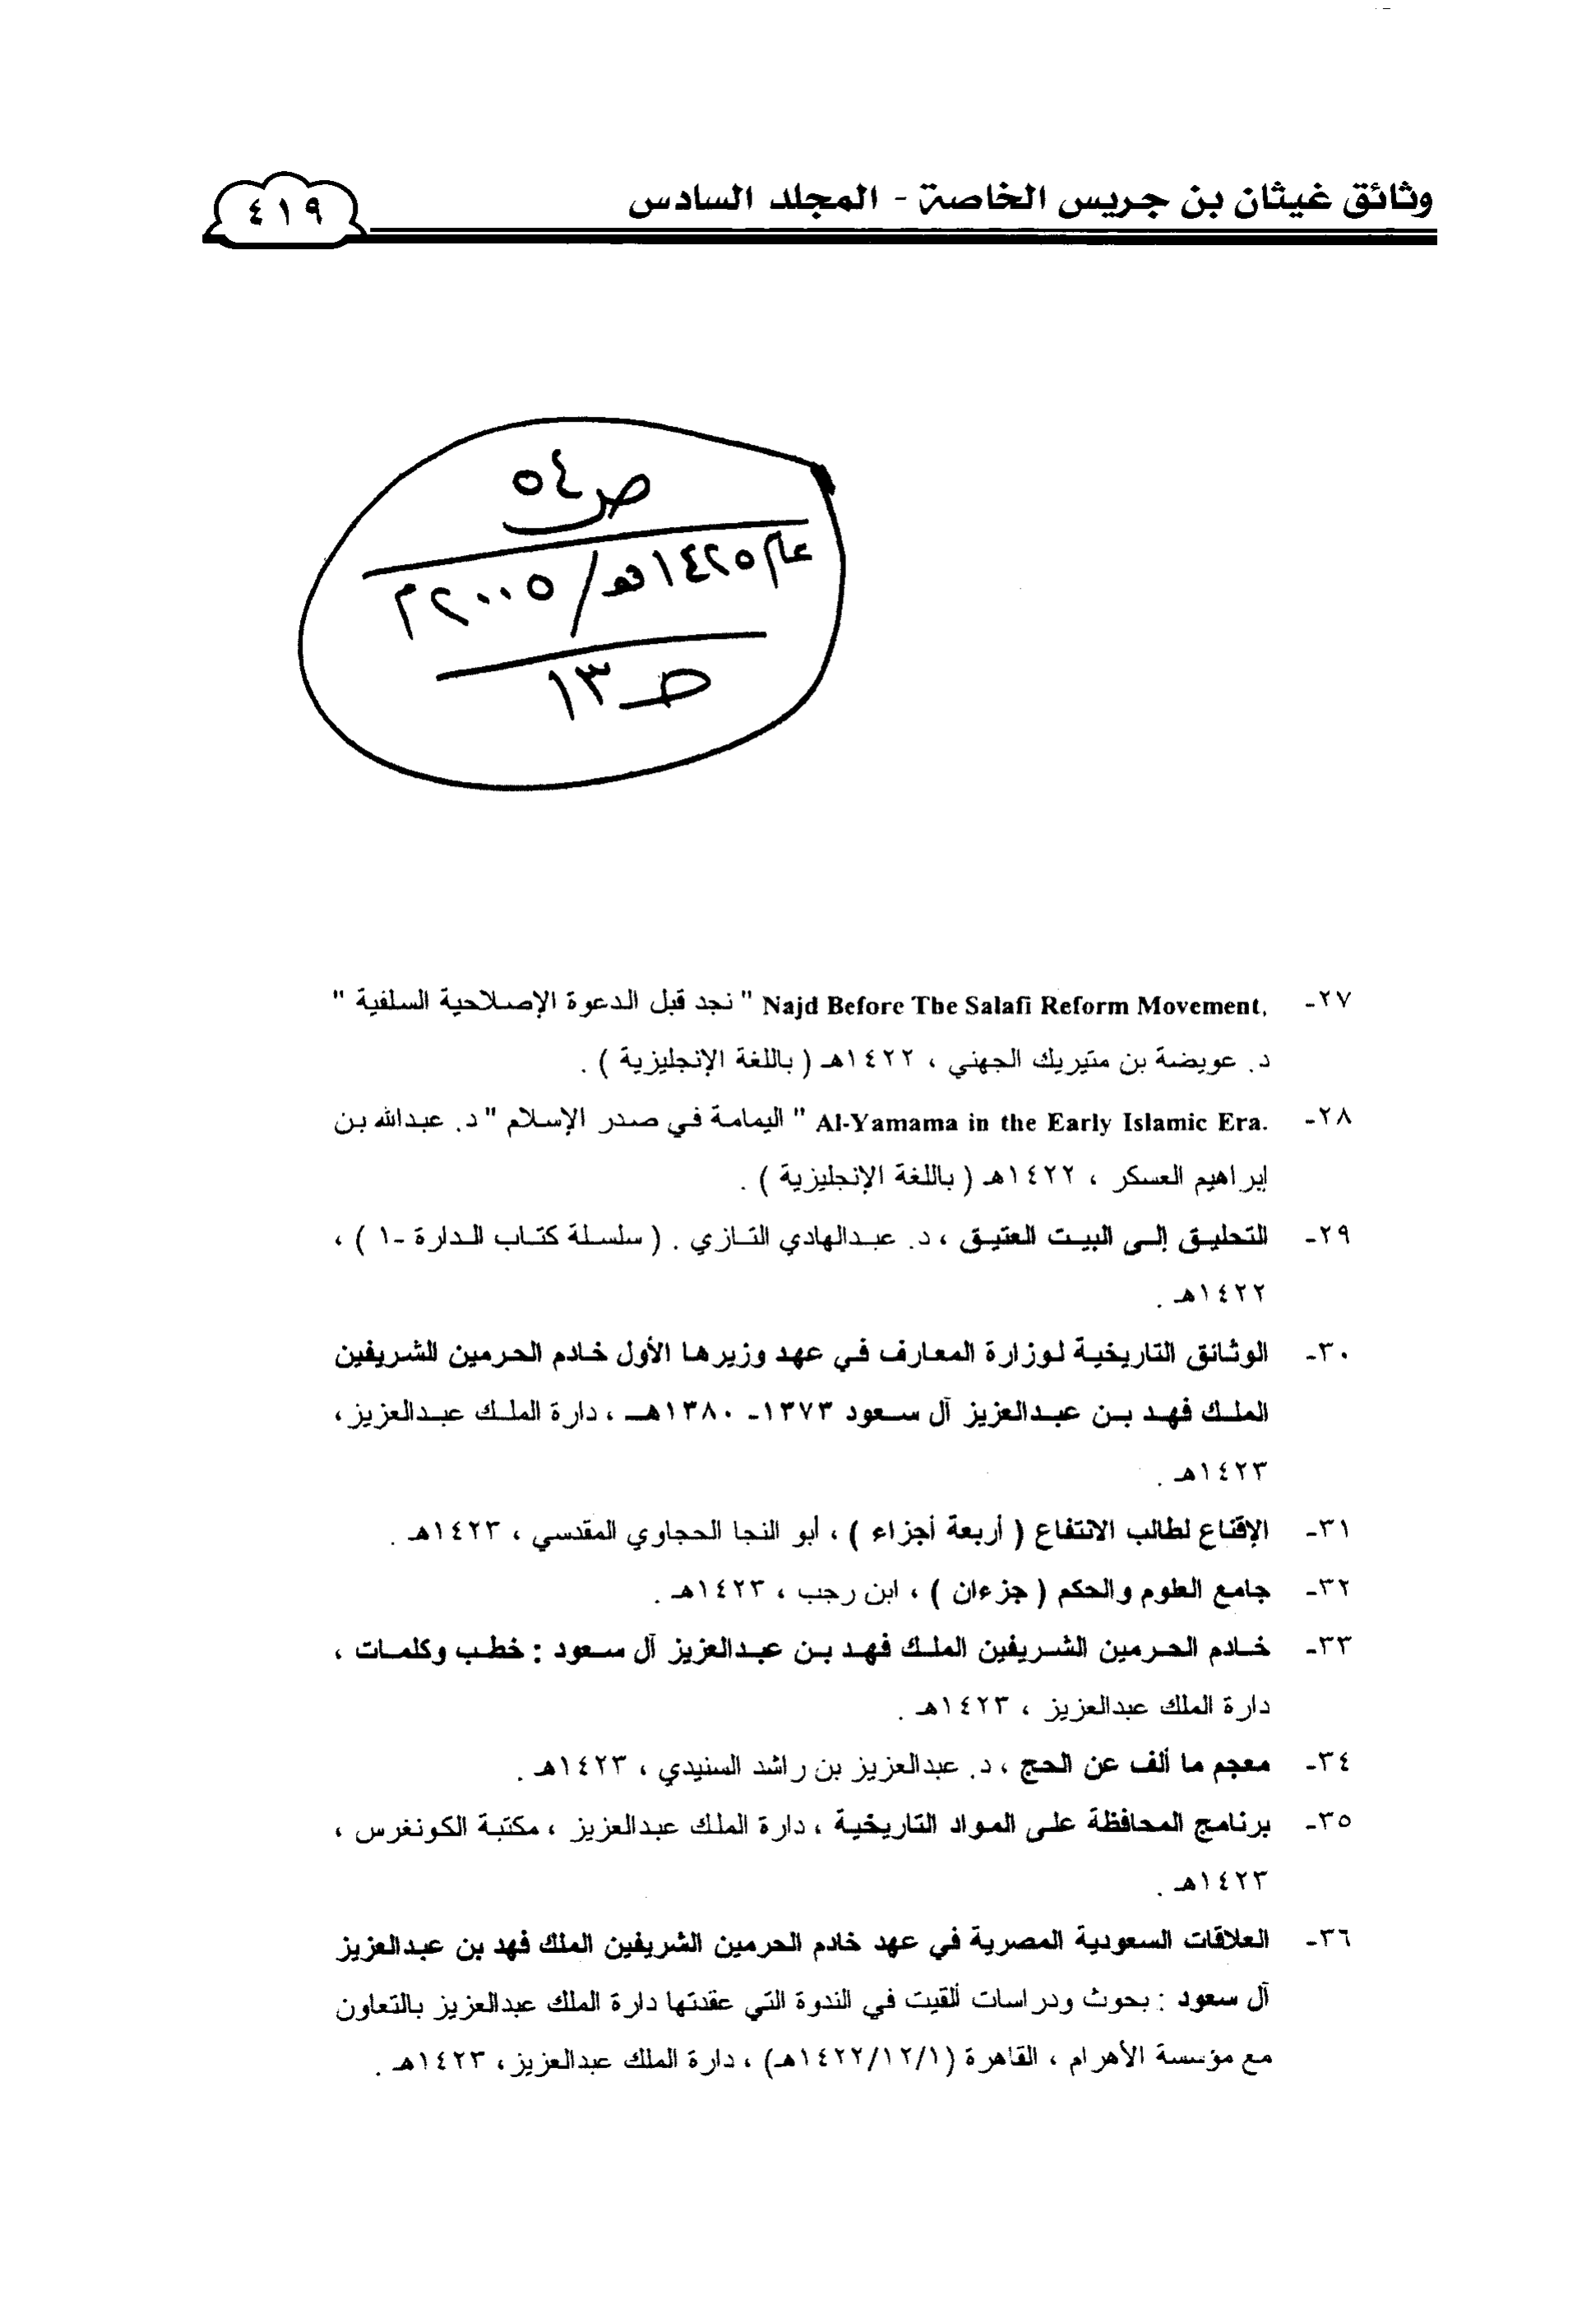 وثائق غيثان بن جريس الخاصة - المجلد السادس
٤١٩
ص ٥٤
عام ١٤٢٥هـ / ٢٠٠٥م
صـ ١٣
٢٧- Najd Before The Salafi Reform Movement, " نجد قبل الدعوة الإصلاحية السلفية "
د. عويضة بن متيريك الجهني ، ١٤٢٢هـ ( باللغة الإنجليزية ) .
٢٨- Al-Yamama in the Early Islamic Era. " اليمامة في صدر الإسلام " د. عبدالله بن
إبراهيم العسكر ، ١٤٢٢هـ ( باللغة الإنجليزية ) .
٢٩- التحليق إلى البيت العتيق ، د. عبدالهادي التازي . ( سلسلة كتاب الدارة -١ ) ،
١٤٢٢هـ .
٣٠- الوثائق التاريخية لوزارة المعارف في عهد وزيرها الأول خادم الحرمين الشريفين
الملك فهد بن عبدالعزيز آل سعود ١٣٧٣- ١٣٨٠هـ ، دارة الملك عبدالعزيز،
١٤٢٣هـ .
٣١- الإقناع لطالب الانتفاع ( أربعة أجزاء ) ، أبو النجا الحجاوي المقدسي ، ١٤٢٣هـ .
٣٢- جامع العلوم والحكم ( جزءان ) ، ابن رجب ، ١٤٢٣هـ .
٣٣- خادم الحرمين الشريفين الملك فهد بن عبدالعزيز آل سعود : خطب وكلمات ،
دارة الملك عبدالعزيز ، ١٤٢٣هـ .
٣٤- معجم ما ألف عن الحج ، د. عبدالعزيز بن راشد السنيدي ، ١٤٢٣هـ .
٣٥- برنامج المحافظة على المواد التاريخية ، دارة الملك عبدالعزيز ، مكتبة الكونغرس ،
١٤٢٣هـ .
٣٦- العلاقات السعودية المصرية في عهد خادم الحرمين الشريفين الملك فهد بن عبدالعزيز
آل سعود : بحوث ودراسات ألقيت في الندوة التي عقدتها دارة الملك عبدالعزيز بالتعاون
مع مؤسسة الأهرام ، القاهرة (١٤٢٢/١٢/١هـ) ، دارة الملك عبدالعزيز، ١٤٢٣هـ .